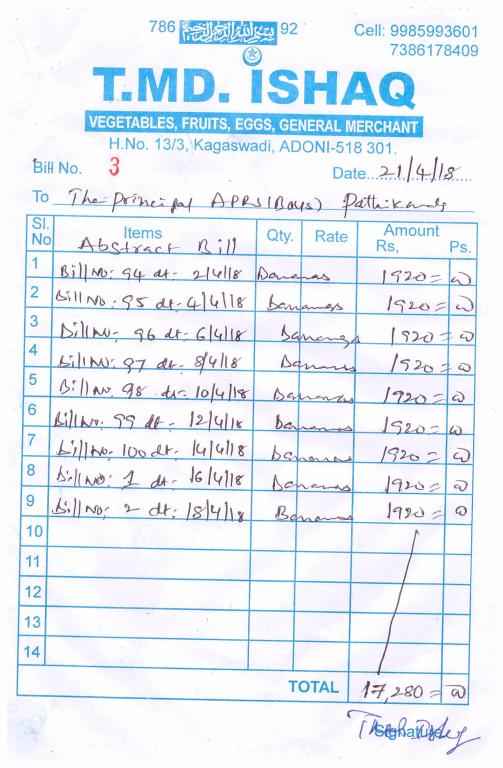 786 بسم الله الرحمن الرحيم 92
Cell: 9985993601
7386178409
T.MD. ISHAQ
VEGETABLES, FRUITS, EGGS, GENERAL MERCHANT
H.No. 13/3, Kagaswadi, ADONI-518 301.
Bill No. 3 Date...21/4/18....
To The principal APRS (Boys) Pathikonda
Sl. No Items Qty. Rate Amount Rs, Ps.
Abstract Bill
1 Bill No: 94 dt- 2/4/18 Bananas 1920=00
2 Bill No: 95 dt- 4/4/18 Bananas 1920=00
3 Bill No: 96 dt- 6/4/18 Bananas 1920=00
4 Bill No: 97 dt- 8/4/18 Bananas 1920=00
5 Bill No: 98 dt- 10/4/18 Bananas 1920=00
6 Bill No: 99 dt- 12/4/18 Bananas 1920=00
7 Bill No: 100 dt- 14/4/18 Bananas 1920=00
8 Bill No: 1 dt- 16/4/18 Bananas 1920=00
9 Bill No: 2 dt: 18/4/18 Bananas 1920=00
10
11
12
13
14
TOTAL 17,280=00
Signature